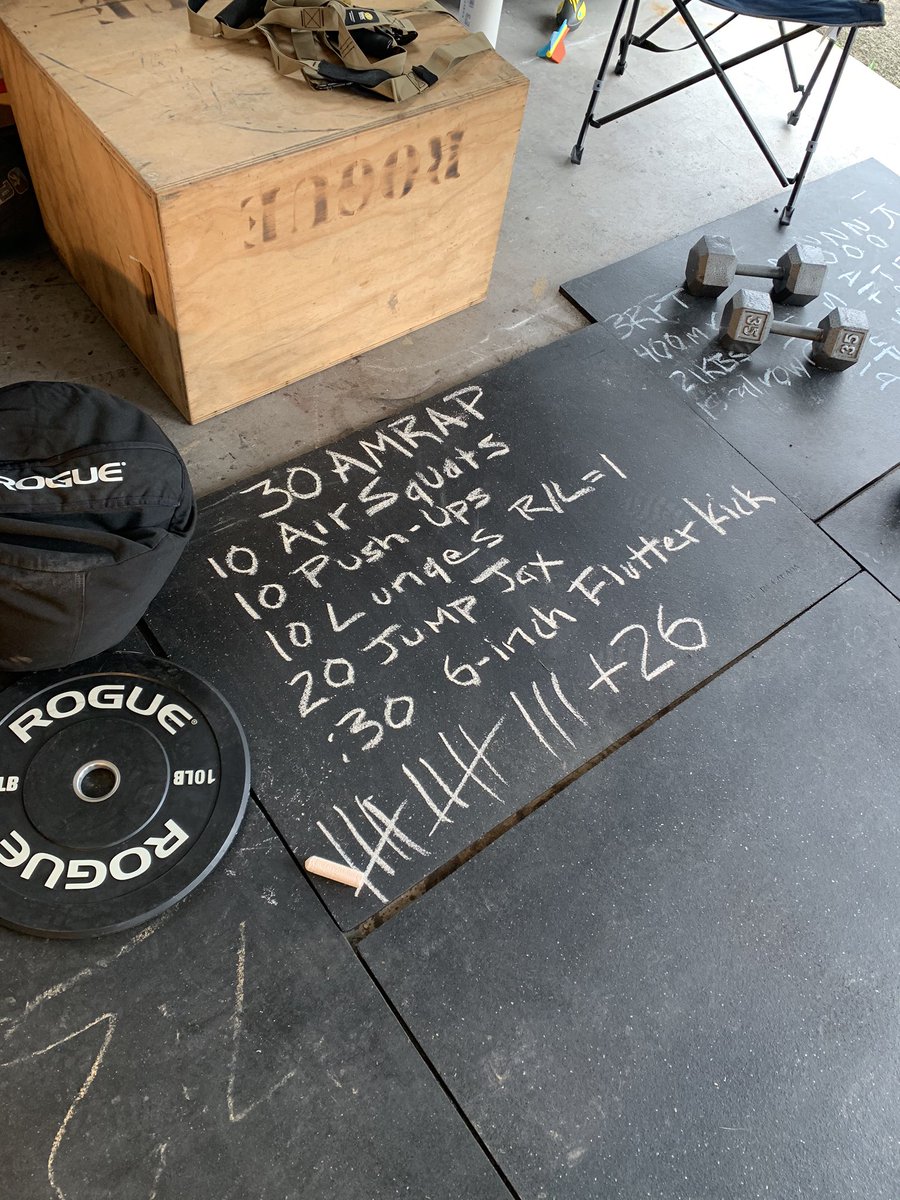 ROGUE
3RFT
400m
21KBS
ROGUE
30 AMRAP
10 Air Squats
10 Push-ups
10 Lunges R/L=1
20 Jump Jax
:30 6-inch Flutter Kick
+26
35
35
ROGUE
10LB
LB
ROGUE